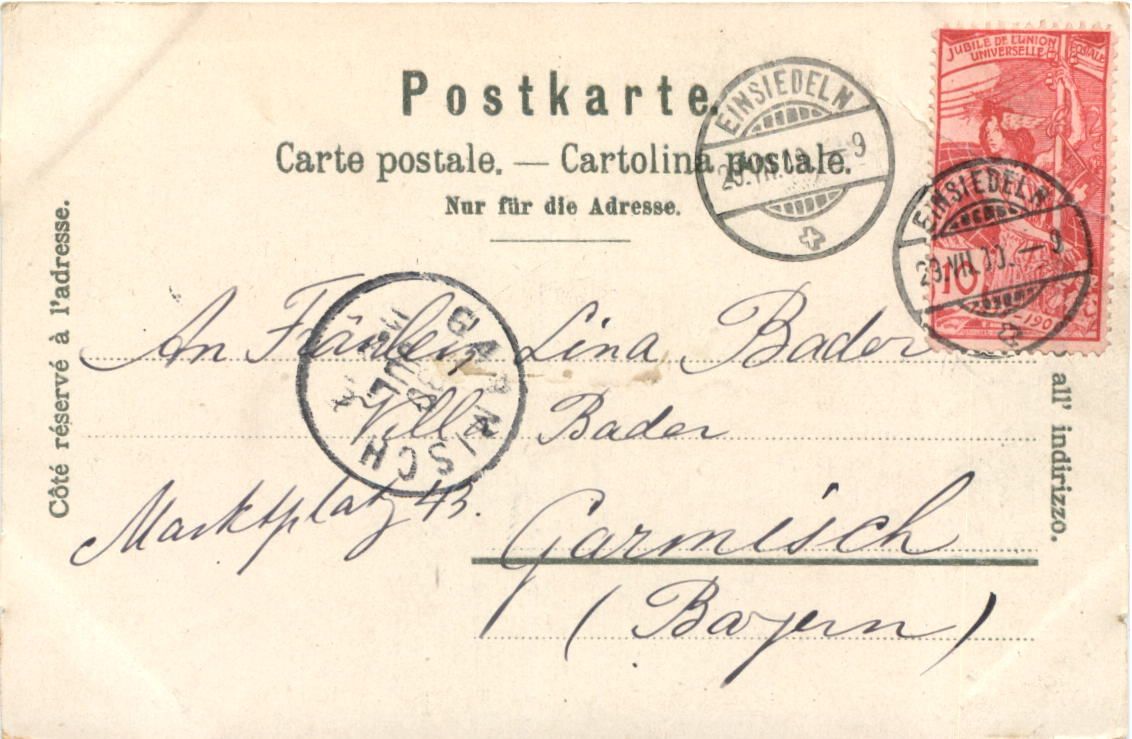 Postkarte.
Carte postale. — Cartolina postale.
Nur für die Adresse.
Côté réservé à l'adresse.
all' indirizzo.
JUBILÉ DE L'UNION
UNIVERSELLE POSTALE
10
EINSIEDELN
29.VII.00.–9
EINSIEDELN
29.VII.00.–9
GARMISCH
An Fräulein Lina Bader
Villa Bader
Marktplatz 43.
Garmisch
(Bayern)